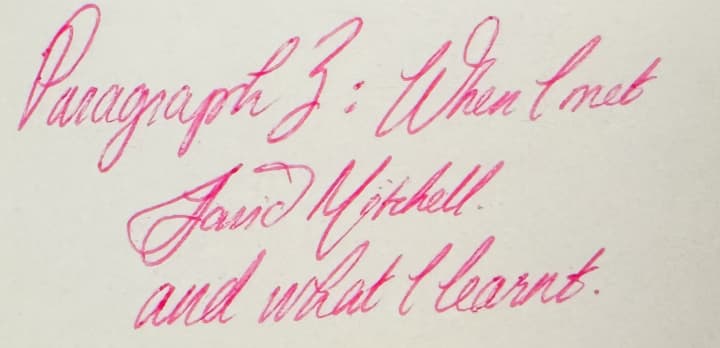 Paragraph 3: When I met
David Mitchell.
and what I learnt.